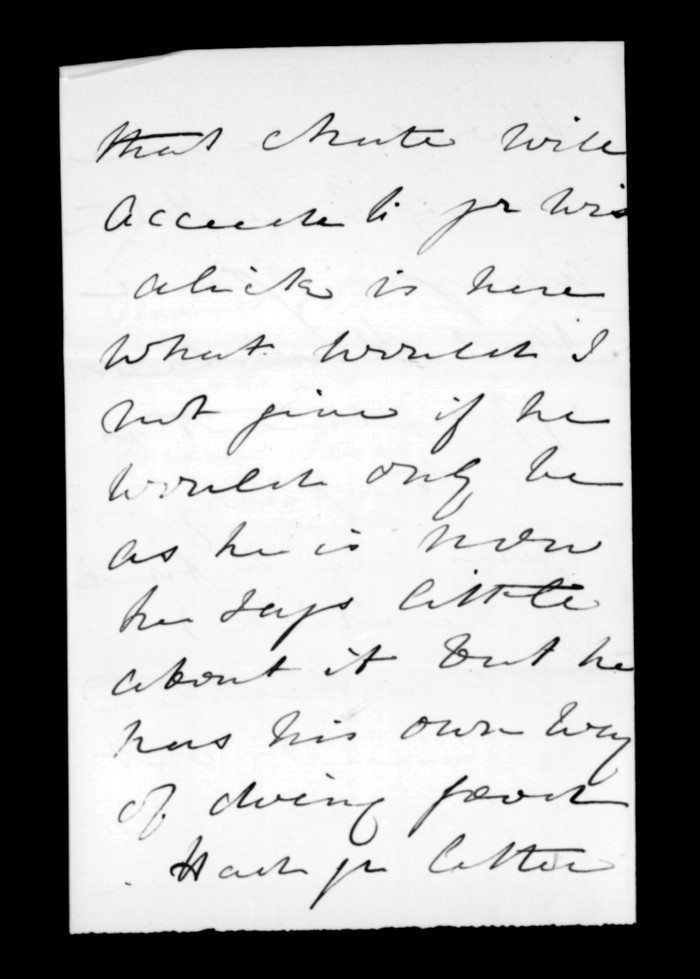 that Chute will
accede to yr wis
alick is here
what would I
not give if he
would only be
as he is now
he says little
about it but he
has his own way
of doing good
Had yr letter